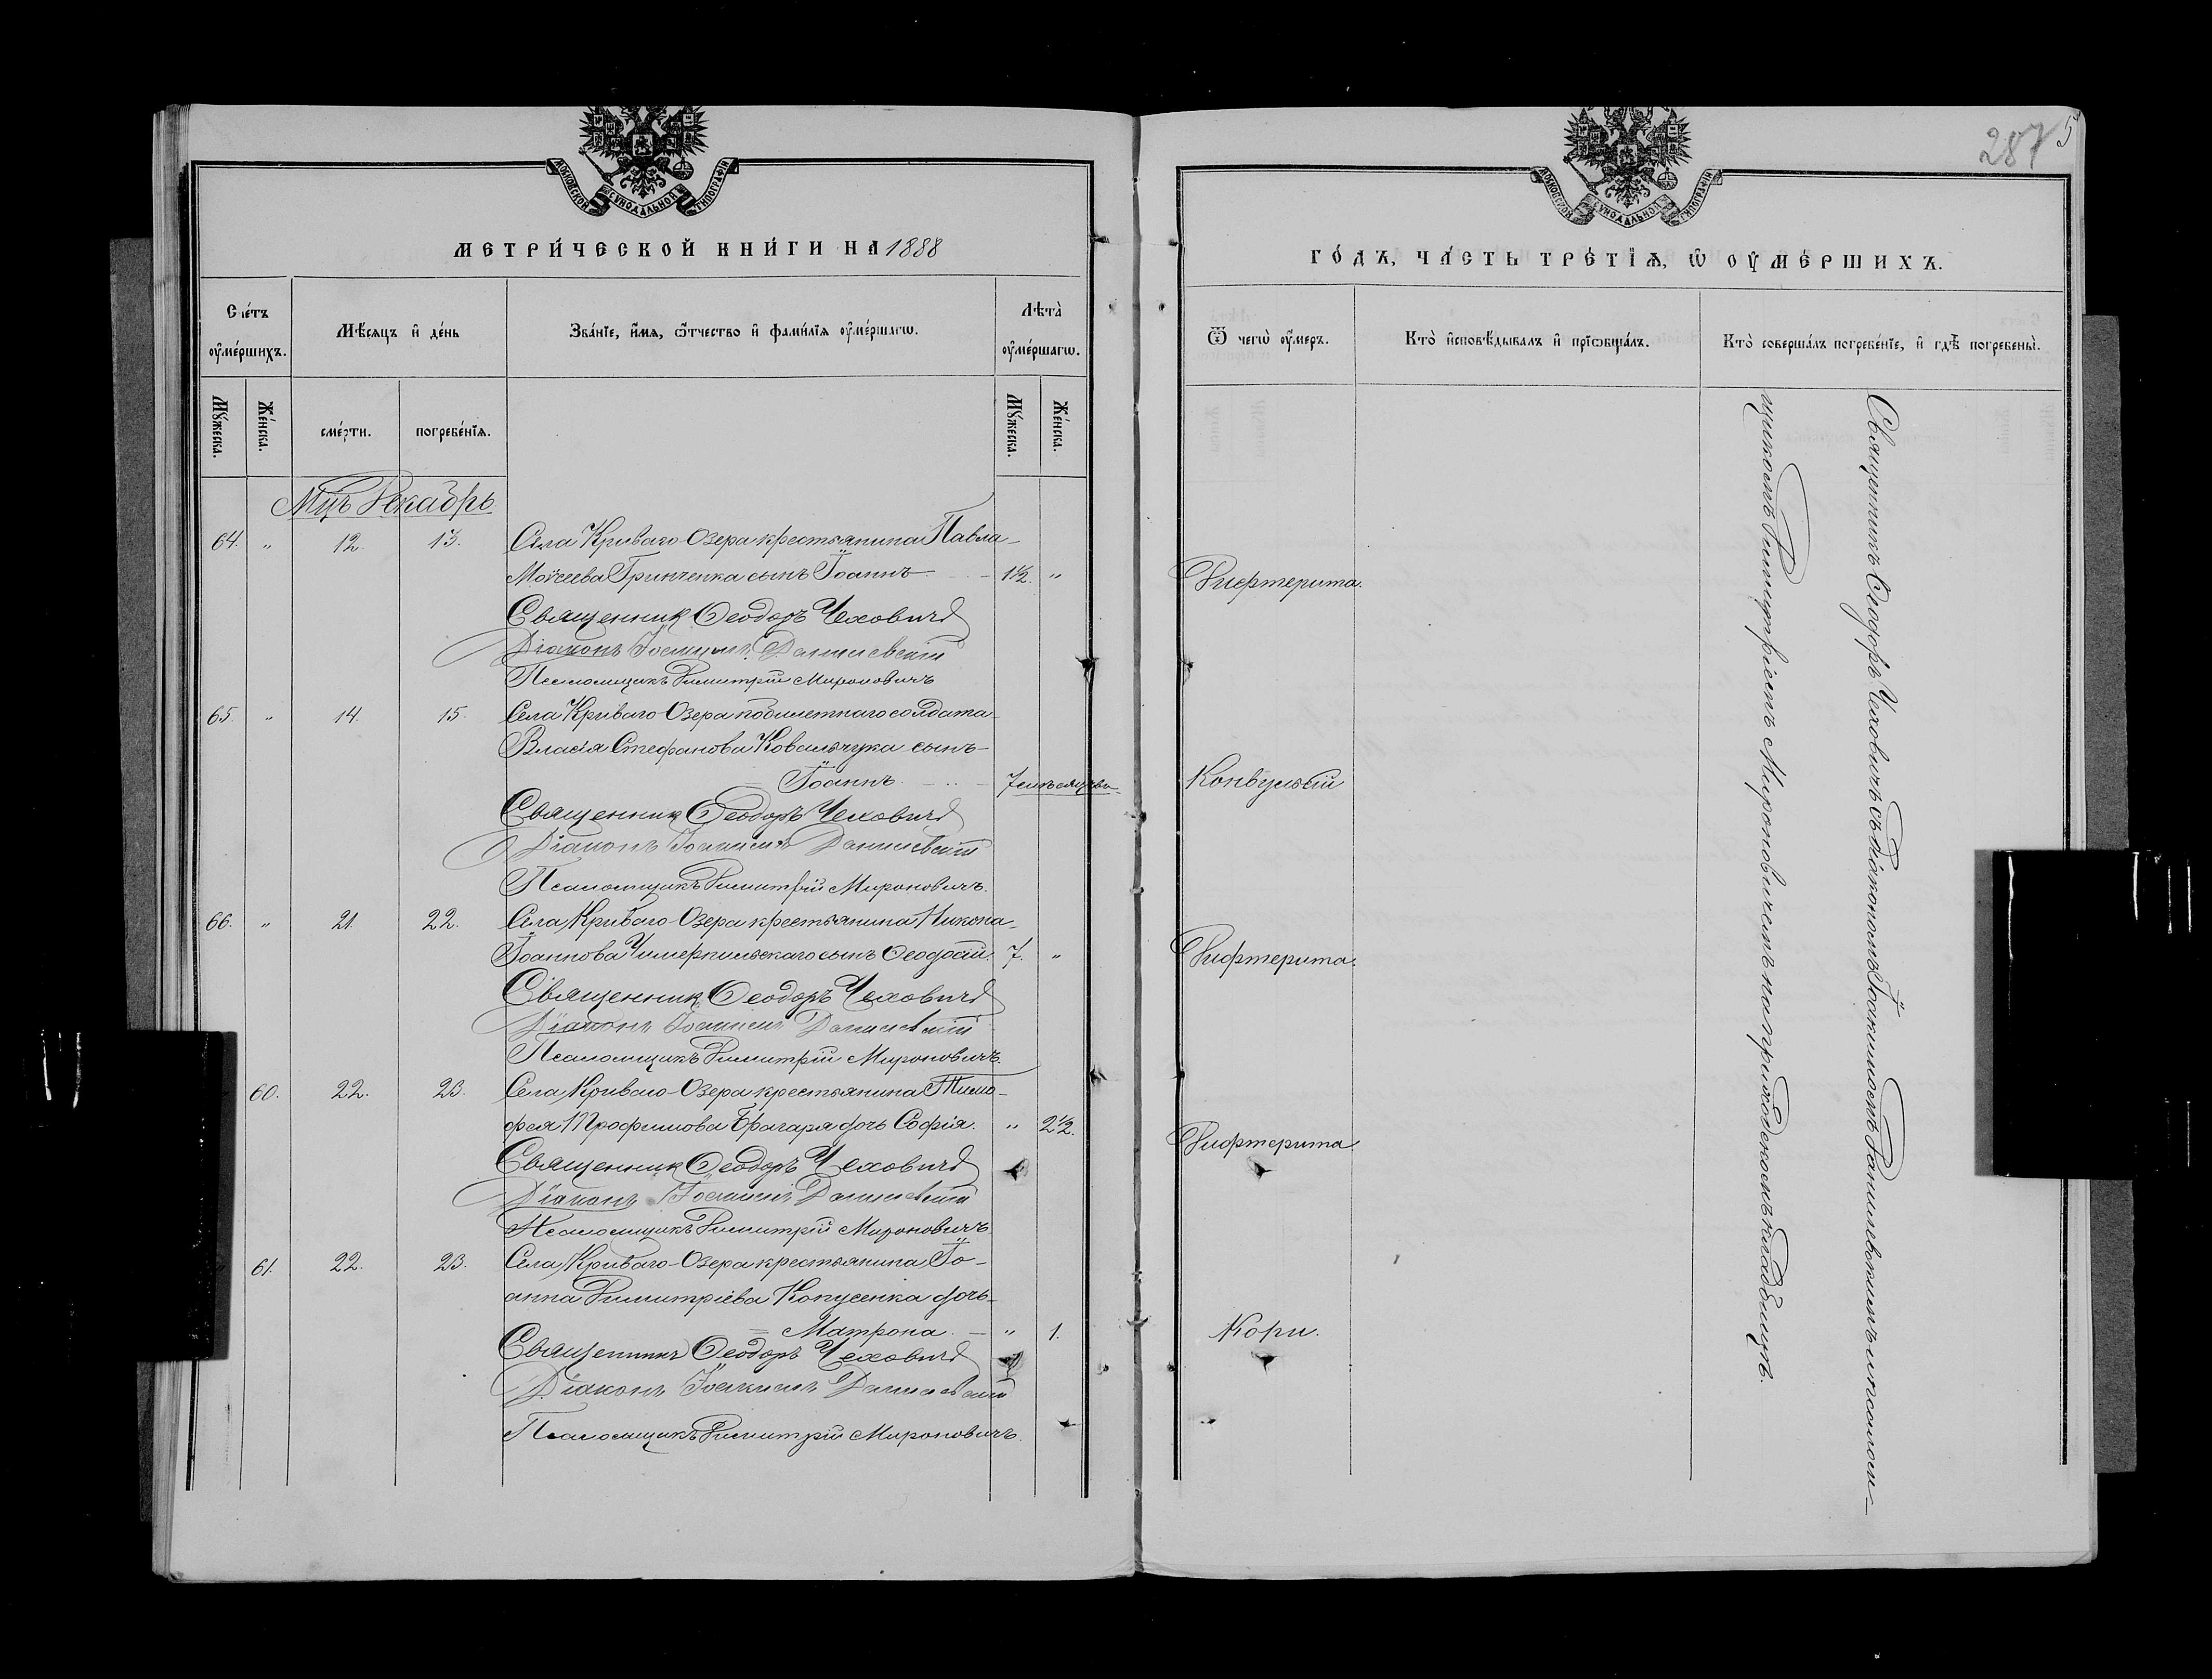 МОСКОВСКОЙ СѴНОДАЛЬНОЙ ТИПОГРАФІИ
МЕТРИ́ЧЕСКОЙ КНИ́ГИ НА 1888
Сче́тъ оу҆ме́ршихъ.
Мѣ́сяцъ и҆ де́нь
Зва́нїе, и҆́мѧ, ѻ҆́тчество и҆ фами́лїѧ оу҆ме́ршагѡ.
Лѣта̀ оу҆ме́ршагѡ.
Мꙋ́жеска.
Же́нска.
сме́рти.
погребе́нїѧ.
Мꙋ́жеска.
Же́нска.
Мцъ Декабрь
64. " 12. 13. Села Криваго-Озера крестьянина Павла
Моѵсеева Гринченка сынъ Іоаннъ. 1½. "
Священникъ Ѳеодоръ Чеховичъ
Діаконъ Іоакимъ Данилевскій
Псаломщикъ Димитрій Мироновичъ
65. " 14. 15. Села Криваго-Озера побилетнаго солдата
Власія Стефанова Ковальчука сынъ
Іоаннъ. 7 мѣсяцевъ
Священникъ Ѳеодоръ Чеховичъ
Діаконъ Іоакимъ Данилевскій
Псаломщикъ Димитрій Мироновичъ.
66. " 21. 22. Села Криваго-Озера крестьянина Никона
Іоаннова Чимерпильскаго сынъ Ѳеодосій. 7. "
Священникъ Ѳеодоръ Чеховичъ
Діаконъ Іоакимъ Данилевскій
Псаломщикъ Димитрій Мироновичъ.
60. 22. 23. Села Криваго-Озера крестьянина Тимо-
фея Трофимова Брагаря дочь Софія. " 2½.
Священникъ Ѳеодоръ Чеховичъ
Діаконъ Іоакимъ Данилевскій
Псаломщикъ Димитрій Мироновичъ
61. 22. 23. Села Криваго-Озера крестьянина Іо-
анна Димитріева Копусенка дочь
Матрона. " 1.
Священникъ Ѳеодоръ Чеховичъ
Діаконъ Іоакимъ Данилевскій
Псаломщикъ Димитрій Мироновичъ.
287
5
МОСКОВСКОЙ СѴНОДАЛЬНОЙ ТИПОГРАФІИ
ГО́ДЪ, ЧА́СТЬ ТРЕ́ТЇѦ, Ѡ҆ ОУ҆МЕ́РШИХЪ.
Ѿ чегѡ̀ оу҆́меръ.
Кто̀ и҆сповѣ́дывалъ и҆ прїѡбща́лъ.
Кто̀ соверша́лъ погребе́нїе, и҆ гдѣ̀ погребены̀.
Дифтерита.
Конвульсій
Дифтерита.
Дифтерита.
Кори.
Священникъ Ѳеодоръ Чеховичъ съ Діакономъ Іоакимомъ Данилевскимъ и псалом-
щикомъ Димитріемъ Мироновичемъ на приходскомъ кладбищѣ.